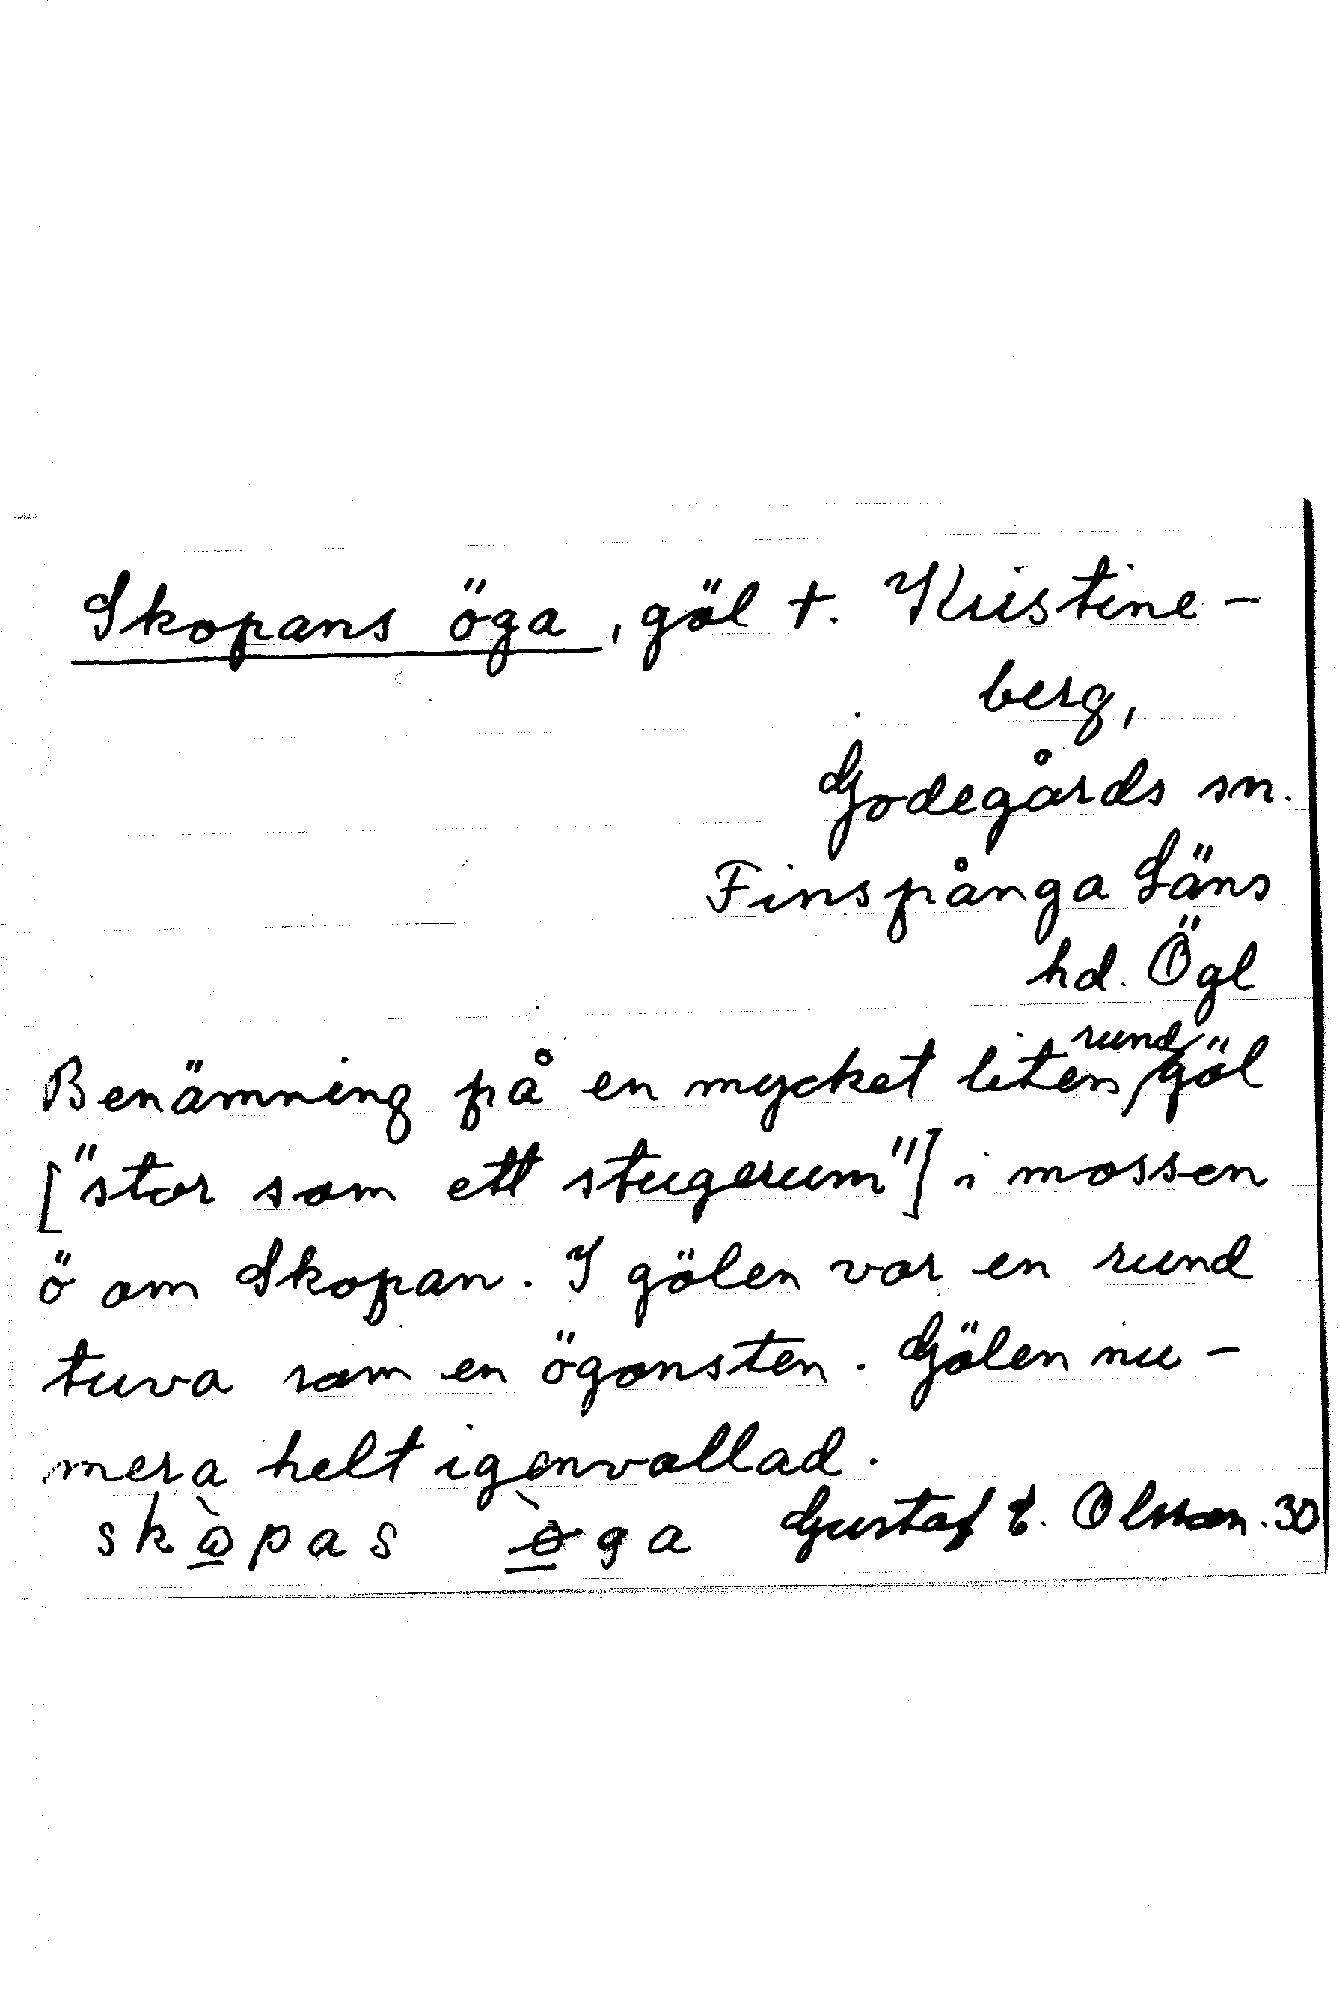 Skopans öga, göl t. Kristine-
berg,
Godegårds sn.
Finspånga Läns
hd. Ögl
Benämning på en mycket liten rund göl
["stor som ett stugorum"] i mossen
ö om Skopan. I gölen var en rund
tuva som en ögonsten. Gölen nu-
mera helt igenvallad.
skò̱pas ø̱̀ga Gustaf E. Olsson. 30